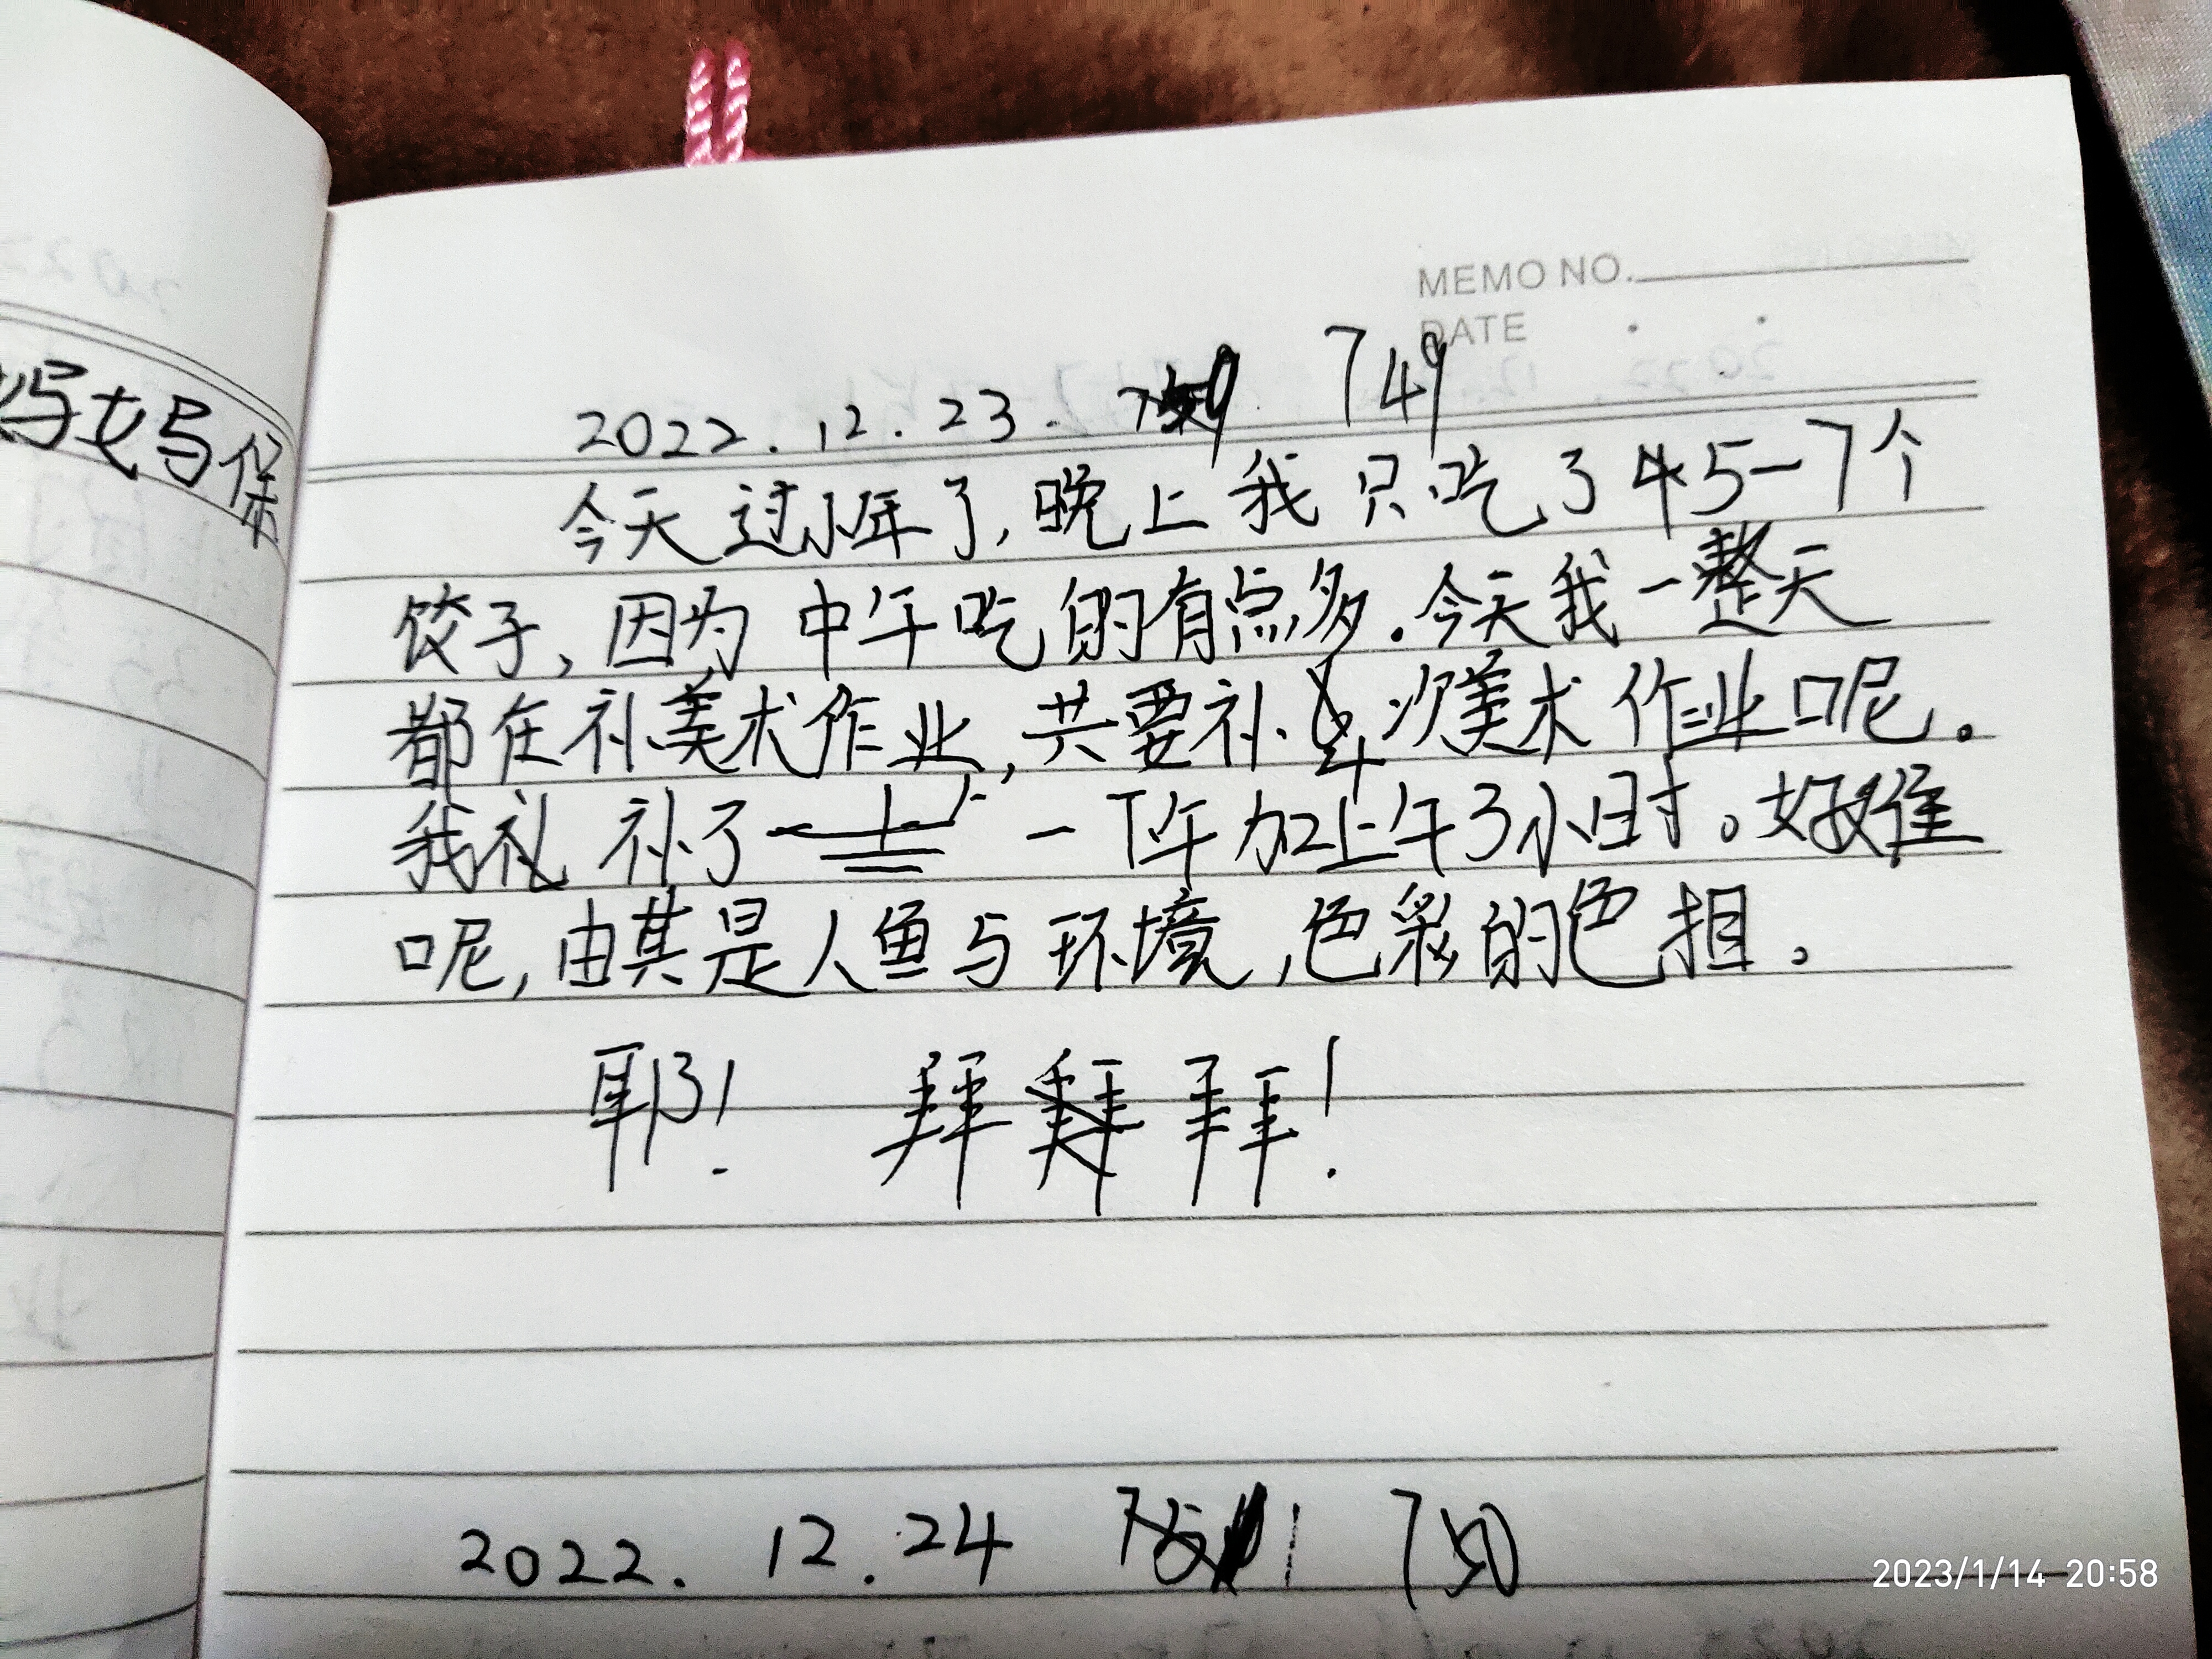 妈妈保
MEMO NO.
DATE
2022.12.23. 749
今天过小年了,晚上我只吃了45-7个
饺子,因为中午吃的有点多.今天我一整天
都在补美术作业,共要补4次美术作业呢。
我补了一下午加上午3小时。好难
呢,由其是人鱼与环境,色彩的色相。
耶! 拜拜!
2022.12.24 750
2023/1/14 20:58